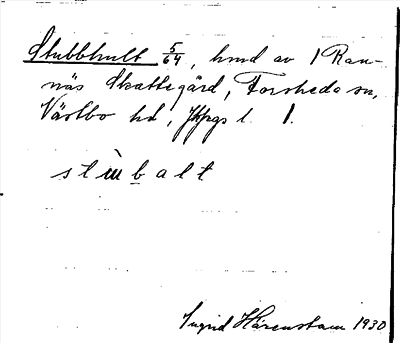 Stubbhult 5/64, hmd av 1 Ran-
näs Skattegård, Forsheda sn,
Västbo hd, Jkpgs l. 1.
stùbalt
Ingrid Härenstam 1930